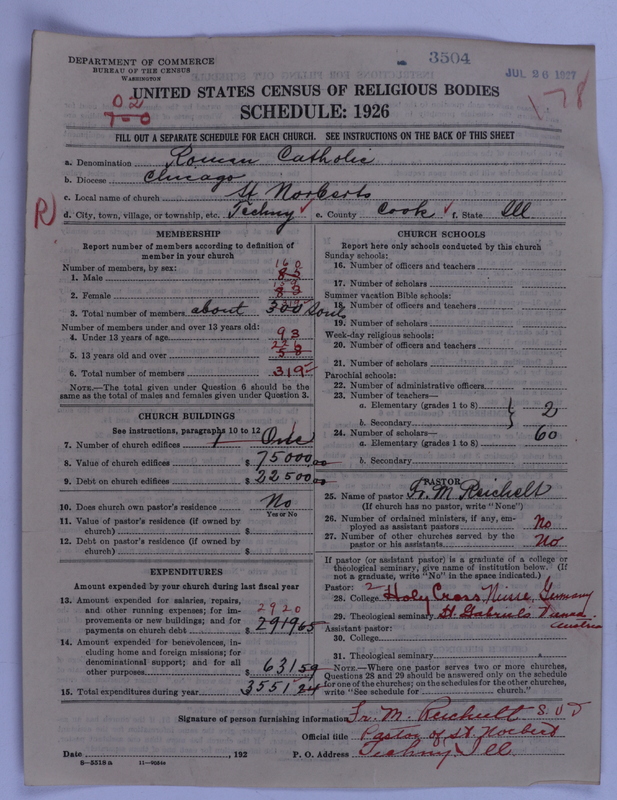 DEPARTMENT OF COMMERCE
BUREAU OF THE CENSUS
WASHINGTON
3504
JUL 26 1927
178
UNITED STATES CENSUS OF RELIGIOUS BODIES
SCHEDULE: 1926
FILL OUT A SEPARATE SCHEDULE FOR EACH CHURCH. SEE INSTRUCTIONS ON THE BACK OF THIS SHEET
a. Denomination Roman Catholic
b. Diocese Chicago
c. Local name of church St Norberts
R
d. City, town, village, or township, etc. Techny e. County Cook f. State Ill
MEMBERSHIP
Report number of members according to definition of member in your church
Number of members, by sex:
1. Male 160
2. Female
3. Total number of members about 300 Souls
Number of members under and over 13 years old:
4. Under 13 years of age 93
5. 13 years old and over 226
6. Total number of members 319
NOTE.—The total given under Question 6 should be the same as the total of males and females given under Question 3.
CHURCH BUILDINGS
See instructions, paragraphs 10 to 12
7. Number of church edifices 1 One
8. Value of church edifices $ 75000,00
9. Debt on church edifices $ 22500,00
10. Does church own pastor's residence? No
Yes or No
11. Value of pastor's residence (if owned by church) $
12. Debt on pastor's residence (if owned by church) $
EXPENDITURES
Amount expended by your church during last fiscal year
13. Amount expended for salaries, repairs, and other running expenses; for improvements or new buildings; and for payments on church debt $ 2919 65
2920
14. Amount expended for benevolences, including home and foreign missions; for denominational support; and for all other purposes $ 631 59
15. Total expenditures during year $ 3551 24
CHURCH SCHOOLS
Report here only schools conducted by this church
Sunday schools:
16. Number of officers and teachers
17. Number of scholars
Summer vacation Bible schools:
18. Number of officers and teachers
19. Number of scholars
Week-day religious schools:
20. Number of officers and teachers
21. Number of scholars
Parochial schools:
22. Number of administrative officers
23. Number of teachers—
a. Elementary (grades 1 to 8) 2
b. Secondary
24. Number of scholars—
a. Elementary (grades 1 to 8) 60
b. Secondary
PASTOR
25. Name of pastor Fr. M. Reichelt
(If church has no pastor, write "None")
26. Number of ordained ministers, if any, employed as assistant pastors No
27. Number of other churches served by the pastor or his assistants No
If pastor (or assistant pastor) is a graduate of a college or theological seminary, give name of institution below. (If not a graduate, write "No" in the space indicated.)
Pastor: 2
28. College Holy Cross, Germany
29. Theological seminary St Gabriels Austria
Assistant pastor:
30. College
31. Theological seminary
NOTE.—Where one pastor serves two or more churches, Questions 28 and 29 should be answered only on the schedule for one of the churches; on the schedules for the other churches, write "See schedule for church."
Signature of person furnishing information Fr. M. Reichelt
Official title Pastor of St Norbert
Date , 192 P. O. Address Techny Ill
8—5518a 11—9084a